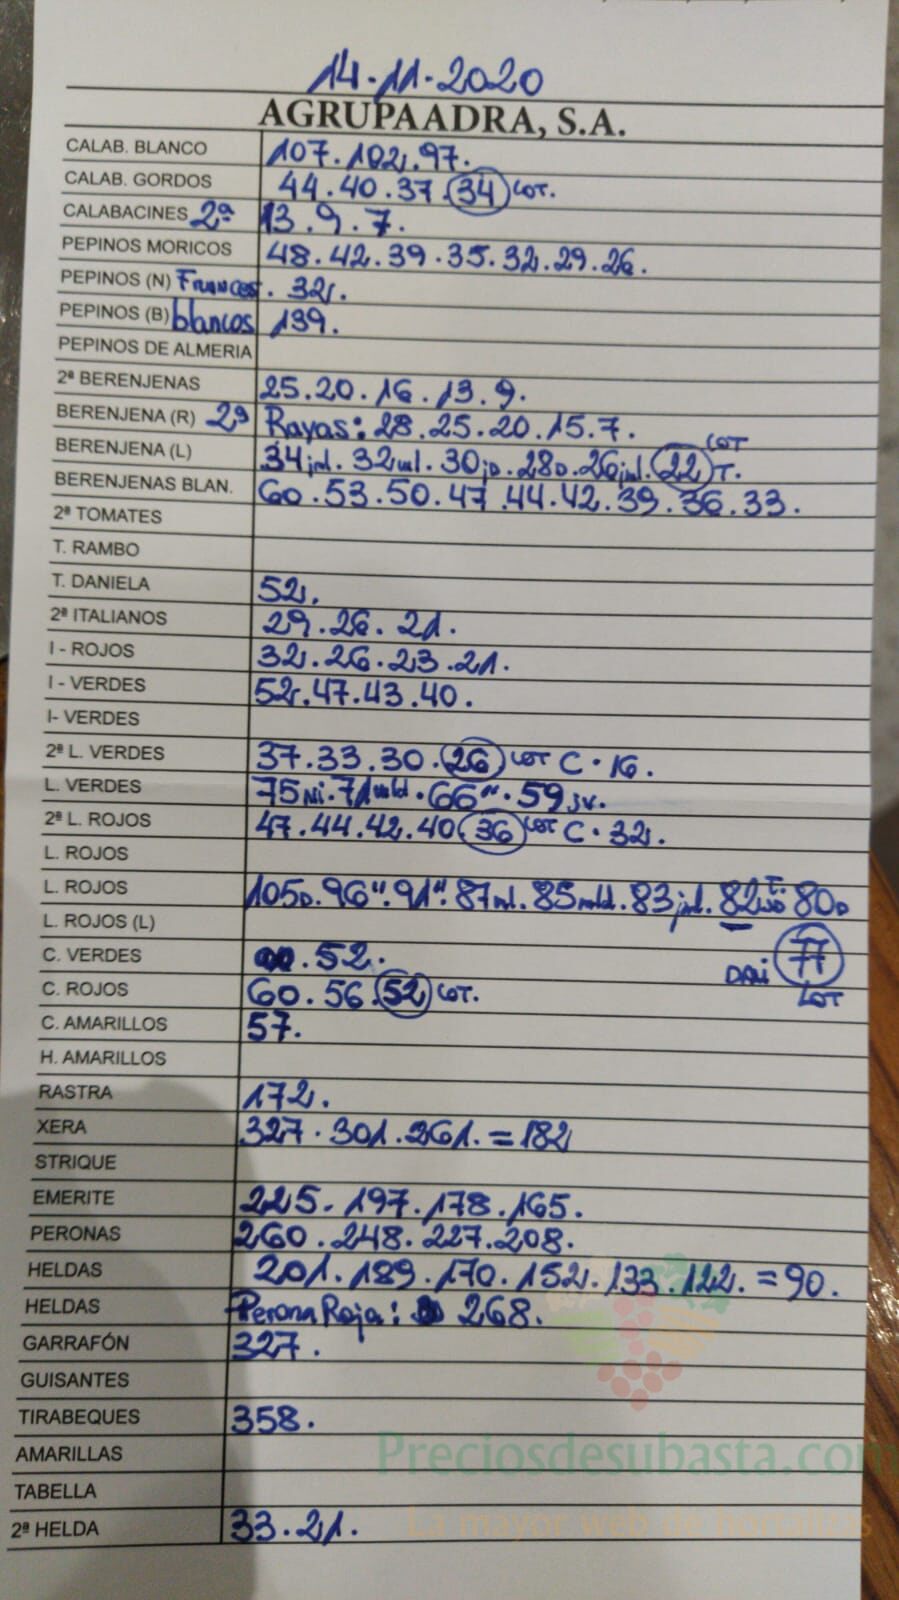 14·11·2020
AGRUPAADRA, S.A.
CALAB. BLANCO 107·102·97.
CALAB. GORDOS 44·40·37·34 LOT.
CALABACINES 2ª 13·9·7.
PEPINOS MORICOS 48·42·39·35·32·29·26.
PEPINOS (N) Frances. 32.
PEPINOS (B) blancos 139.
PEPINOS DE ALMERIA
2ª BERENJENAS 25·20·16·13·9.
BERENJENA (R) 2ª Rayas: 28·25·20·15·7.
BERENJENA (L) 34 32 30 28D·26 22 LOT T.
BERENJENAS BLAN. 60·53·50·47·44·42·39·36·33.
2ª TOMATES
T. RAMBO
T. DANIELA 52.
2ª ITALIANOS 29·26·21.
I - ROJOS 32·26·23·21.
I - VERDES 52·47·43·40.
I- VERDES
2ª L. VERDES 37·33·30·26 LOT C·16.
L. VERDES 75 Ni·71 mld·66"·59 JV.
2ª L. ROJOS 47·44·42·40 36 LOT C·32.
L. ROJOS
L. ROJOS 105D·96"·91"·87ml·85mld·83jml·82 80D
L. ROJOS (L)
C. VERDES ·52. DAI 77 LOT
C. ROJOS 60·56·52 LOT.
C. AMARILLOS 57.
H. AMARILLOS
RASTRA 172.
XERA 327·301·261.=182
STRIQUE
EMERITE 225·197·178·165.
PERONAS 260·248·227·208.
HELDAS 201·189·170·152·133·122.=90.
HELDAS Perona Roja: 268.
GARRAFÓN 327.
GUISANTES
TIRABEQUES 358.
AMARILLAS
Preciosdesubasta.com
TABELLA
2ª HELDA 33·21.
La mayor web de hortalizas